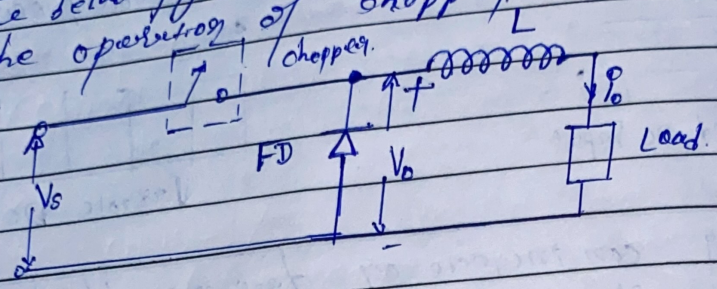 he operation of
chopper.
L
+
i₀
FD
Load.
V₀
Vs
-